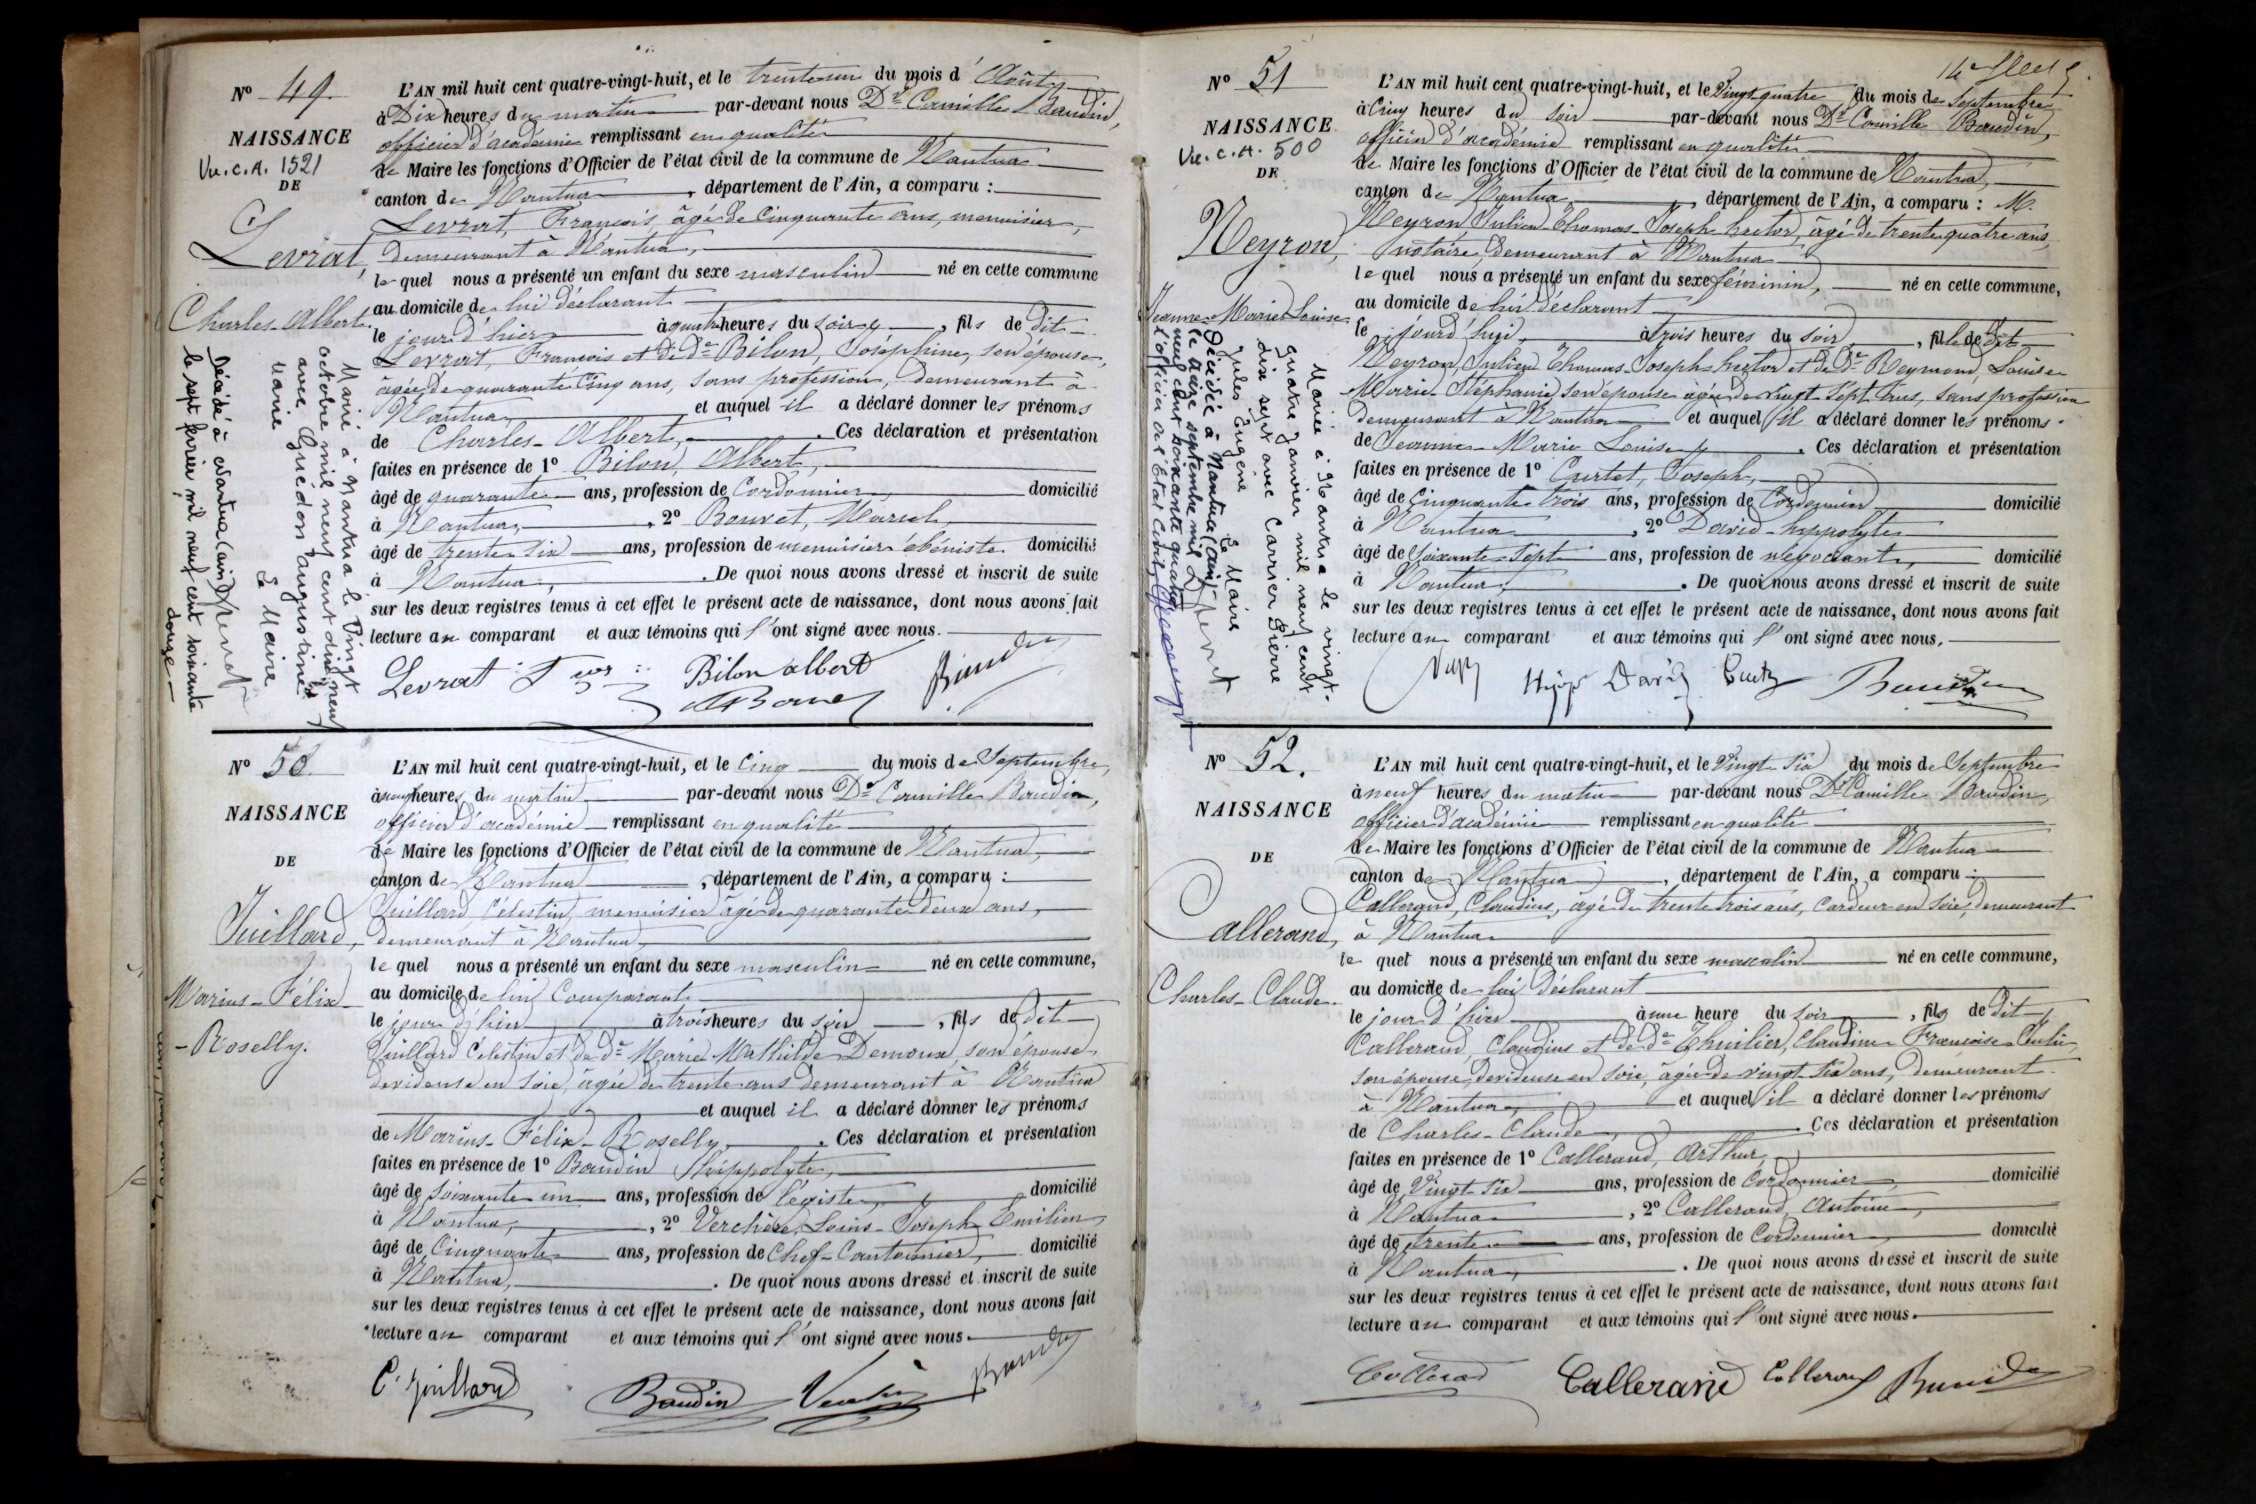 N° 49.
NAISSANCE
Vu. C. A. 1521
DE
Levrat,
Charles-Albert.
L'AN mil huit cent quatre-vingt-huit, et le trente un du mois d'Août
à Dix heures du matin par-devant nous Dr Camille Baudin,
officier d'académie remplissant en qualité
de Maire les fonctions d'Officier de l'état civil de la commune de Nantua
canton de Nantua, département de l'Ain, a comparu :
Levrat, François, âgé de Cinquante ans, menuisier,
demeurant à Nantua,
lequel nous a présenté un enfant du sexe masculin né en cette commune
au domicile de lui déclarant
le jour d'hier à quatre heures du soir, fils de dit
Levrat, François et de de Bilon, Joséphine, son épouse,
âgée de quarante cinq ans, sans profession, demeurant à
Nantua et auquel il a déclaré donner les prénoms
de Charles-Albert, . Ces déclaration et présentation
faites en présence de 1° Bilon, Albert,
âgé de quarante ans, profession de Cordonnier, domicilié
à Nantua, , 2° Bouvet, Marcel,
âgé de trente six ans, profession de menuisier ébéniste domicilié
à Nantua, . De quoi nous avons dressé et inscrit de suite
sur les deux registres tenus à cet effet le présent acte de naissance, dont nous avons fait
lecture au comparant et aux témoins qui l'ont signé avec nous.
Levrat Bilon albert Baudin
Marié à Nantua le Vingt
octobre mil neuf cent dix neuf
avec Guédon augustine
Marie
Le Maire
Décédé à Nantua (Ain)
le sept février mil neuf cent soixante
douze
N° 50
NAISSANCE
DE
Juillard,
Marius-Félix
-Roselly.
L'AN mil huit cent quatre-vingt-huit, et le Cinq du mois de Septembre,
à heures du matin par-devant nous Dr Camille Baudin,
officier d'académie remplissant en qualité
de Maire les fonctions d'Officier de l'état civil de la commune de Nantua,
canton de Nantua, département de l'Ain, a comparu :
Juillard, Célestin, menuisier âgé de quarante deux ans,
demeurant à Nantua
lequel nous a présenté un enfant du sexe masculin né en cette commune,
au domicile de lui Comparant
le jour d'hier à trois heures du soir, fils de dit
Juillard Célestin et de de Marie Mathilde Demoux, son épouse
devideuse en soie, âgée de trente ans demeurant à Nantua
et auquel il a déclaré donner les prénoms
de Marius-Félix-Roselly, . Ces déclaration et présentation
faites en présence de 1° Baudin Hippolyte,
âgé de soixante un ans, profession de légiste, domicilié
à Nantua, , 2° Verchère, Louis-Joseph Emilien,
âgé de Cinquante ans, profession de Chef-Cantonnier, domicilié
à Nantua, . De quoi nous avons dressé et inscrit de suite
sur les deux registres tenus à cet effet le présent acte de naissance, dont nous avons fait
lecture au comparant et aux témoins qui l'ont signé avec nous.
C. Juillard Baudin Baudin
N° 51
NAISSANCE
Vu. C. A. 500
DE
Neyron,
Jeanne-Marie-Louise
L'AN mil huit cent quatre-vingt-huit, et le Vingt quatre du mois de Septembre
à Cinq heures du soir par-devant nous Dr Camille Baudin,
officier d'académie remplissant en qualité
de Maire les fonctions d'Officier de l'état civil de la commune de Nantua,
canton de Nantua, département de l'Ain, a comparu : M.
Neyron, Julien-Thomas-Joseph-hector, âgé de trente quatre ans,
notaire, demeurant à Nantua
lequel nous a présenté un enfant du sexe féminin, né en cette commune,
au domicile de lui déclarant
le jourd'hui, à trois heures du soir, fille de dit
Neyron, Julien Thomas Joseph hector et de de Reymond, Louise
Marie-Stéphanie, son épouse âgée de vingt sept ans, sans profession
demeurant à Nantua et auquel il a déclaré donner les prénoms
de Jeanne-Marie-Louise, . Ces déclaration et présentation
faites en présence de 1° Curtet, Joseph,
âgé de Cinquante trois ans, profession de Cordonnier domicilié
à Nantua, 2° David-hyppolyte
âgé de Soixante-Sept ans, profession de négociant, domicilié
à Nantua, . De quoi nous avons dressé et inscrit de suite
sur les deux registres tenus à cet effet le présent acte de naissance, dont nous avons fait
lecture au comparant et aux témoins qui l'ont signé avec nous.
David Baudin
Mariée à Nantua le vingt-
quatre Janvier mil neuf cent
dix sept avec Carrier Pierre
Jules Eugène
Le Maire
Décédée à Nantua (Ain)
le treize septembre mil
neuf cent soixante quatre
l'officier de l'Etat Civil,
N° 52.
NAISSANCE
DE
Callerand,
Charles-Claude.
L'AN mil huit cent quatre-vingt-huit, et le Vingt Six du mois de Septembre
à neuf heures du matin par-devant nous Dr Camille Baudin,
officier d'académie remplissant en qualité
de Maire les fonctions d'Officier de l'état civil de la commune de Nantua
canton de Nantua, département de l'Ain, a comparu :
Callerand, Claudius, âgé de trente trois ans, cardeur en soie, demeurant
à Nantua
lequel nous a présenté un enfant du sexe masculin né en cette commune,
au domicile de lui déclarant
le jour d'hier à une heure du soir, fils de dit
Callerand, Claudius et de de Thuilier, Claudine Françoise Julie,
son épouse, devideuse en soie, âgée de vingt six ans, demeurant
à Nantua, et auquel il a déclaré donner les prénoms
de Charles-Claude, . Ces déclaration et présentation
faites en présence de 1° Callerand, Arthur,
âgé de Vingt Six ans, profession de Cordonnier, domicilié
à Nantua, 2° Callerand, Antoine,
âgé de trente ans, profession de Cordonnier, domicilié
à Nantua, . De quoi nous avons dressé et inscrit de suite
sur les deux registres tenus à cet effet le présent acte de naissance, dont nous avons fait
lecture au comparant et aux témoins qui l'ont signé avec nous.
Callerand Callerand Callerand Baudin